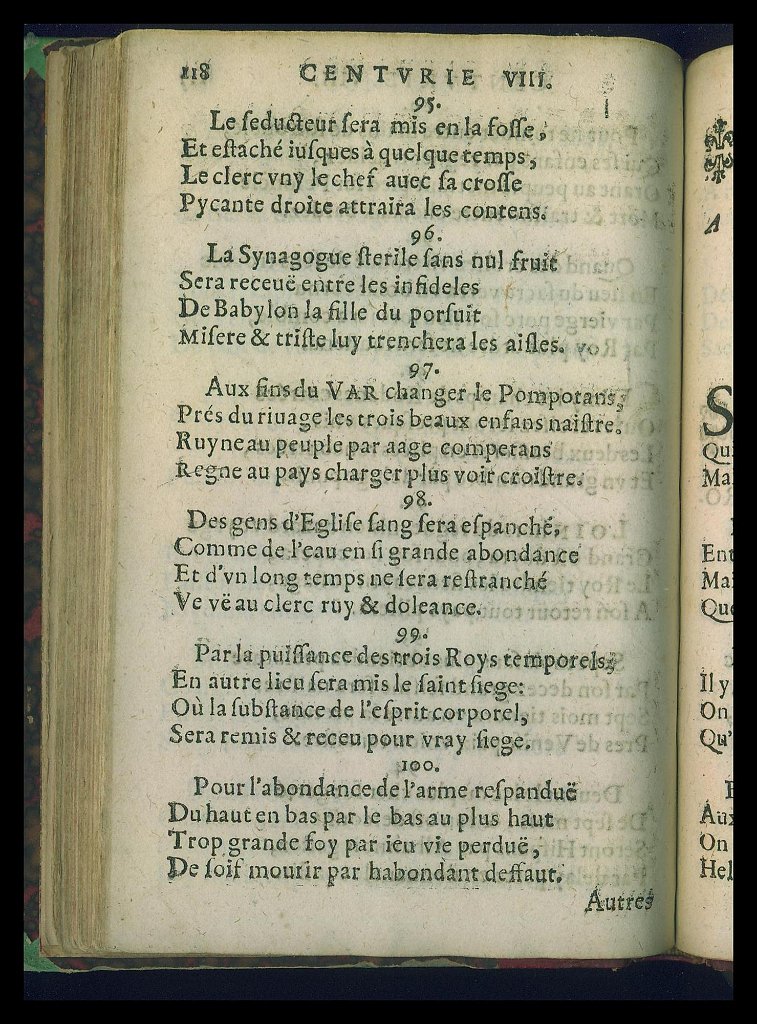 118 CENTVRIE VIII.
95.
Le ſeducteur ſera mis en la foſſe,
Et eſtaché iuſques à quelque temps,
Le clerc vny le chef auec ſa croſſe
Pycante droite attraira les contens.
96.
La Synagogue ſterile ſans nul fruit
Sera receuë entre les infideles
De Babylon la fille du porſuit
Miſere & triſte luy trenchera les aiſles.
97.
Aux fins du VAR changer le Pompotans,
Prés du riuage les trois beaux enfans naiſtre.
Ruyne au peuple par aage competans
Regne au pays charger plus voir croiſtre.
98.
Des gens d'Egliſe ſang ſera eſpanché,
Comme de l'eau en ſi grande abondance
Et d'vn long temps ne ſera reſtranché
Ve vë au clerc ruy & doleance.
99.
Par la puiſſance des trois Roys temporels,
En autre lieu ſera mis le ſaint ſiege:
Où la ſubſtance de l'eſprit corporel,
Sera remis & receu pour vray ſiege.
100.
Pour l'abondance de l'arme reſpanduë
Du haut en bas par le bas au plus haut
Trop grande foy par ieu vie perduë,
De ſoif mourir par habondant deffaut.
Autres
A
S
Qui
Ma
Ent
Mai
Que
Il y
On
Qu'
Aux
On
Hel